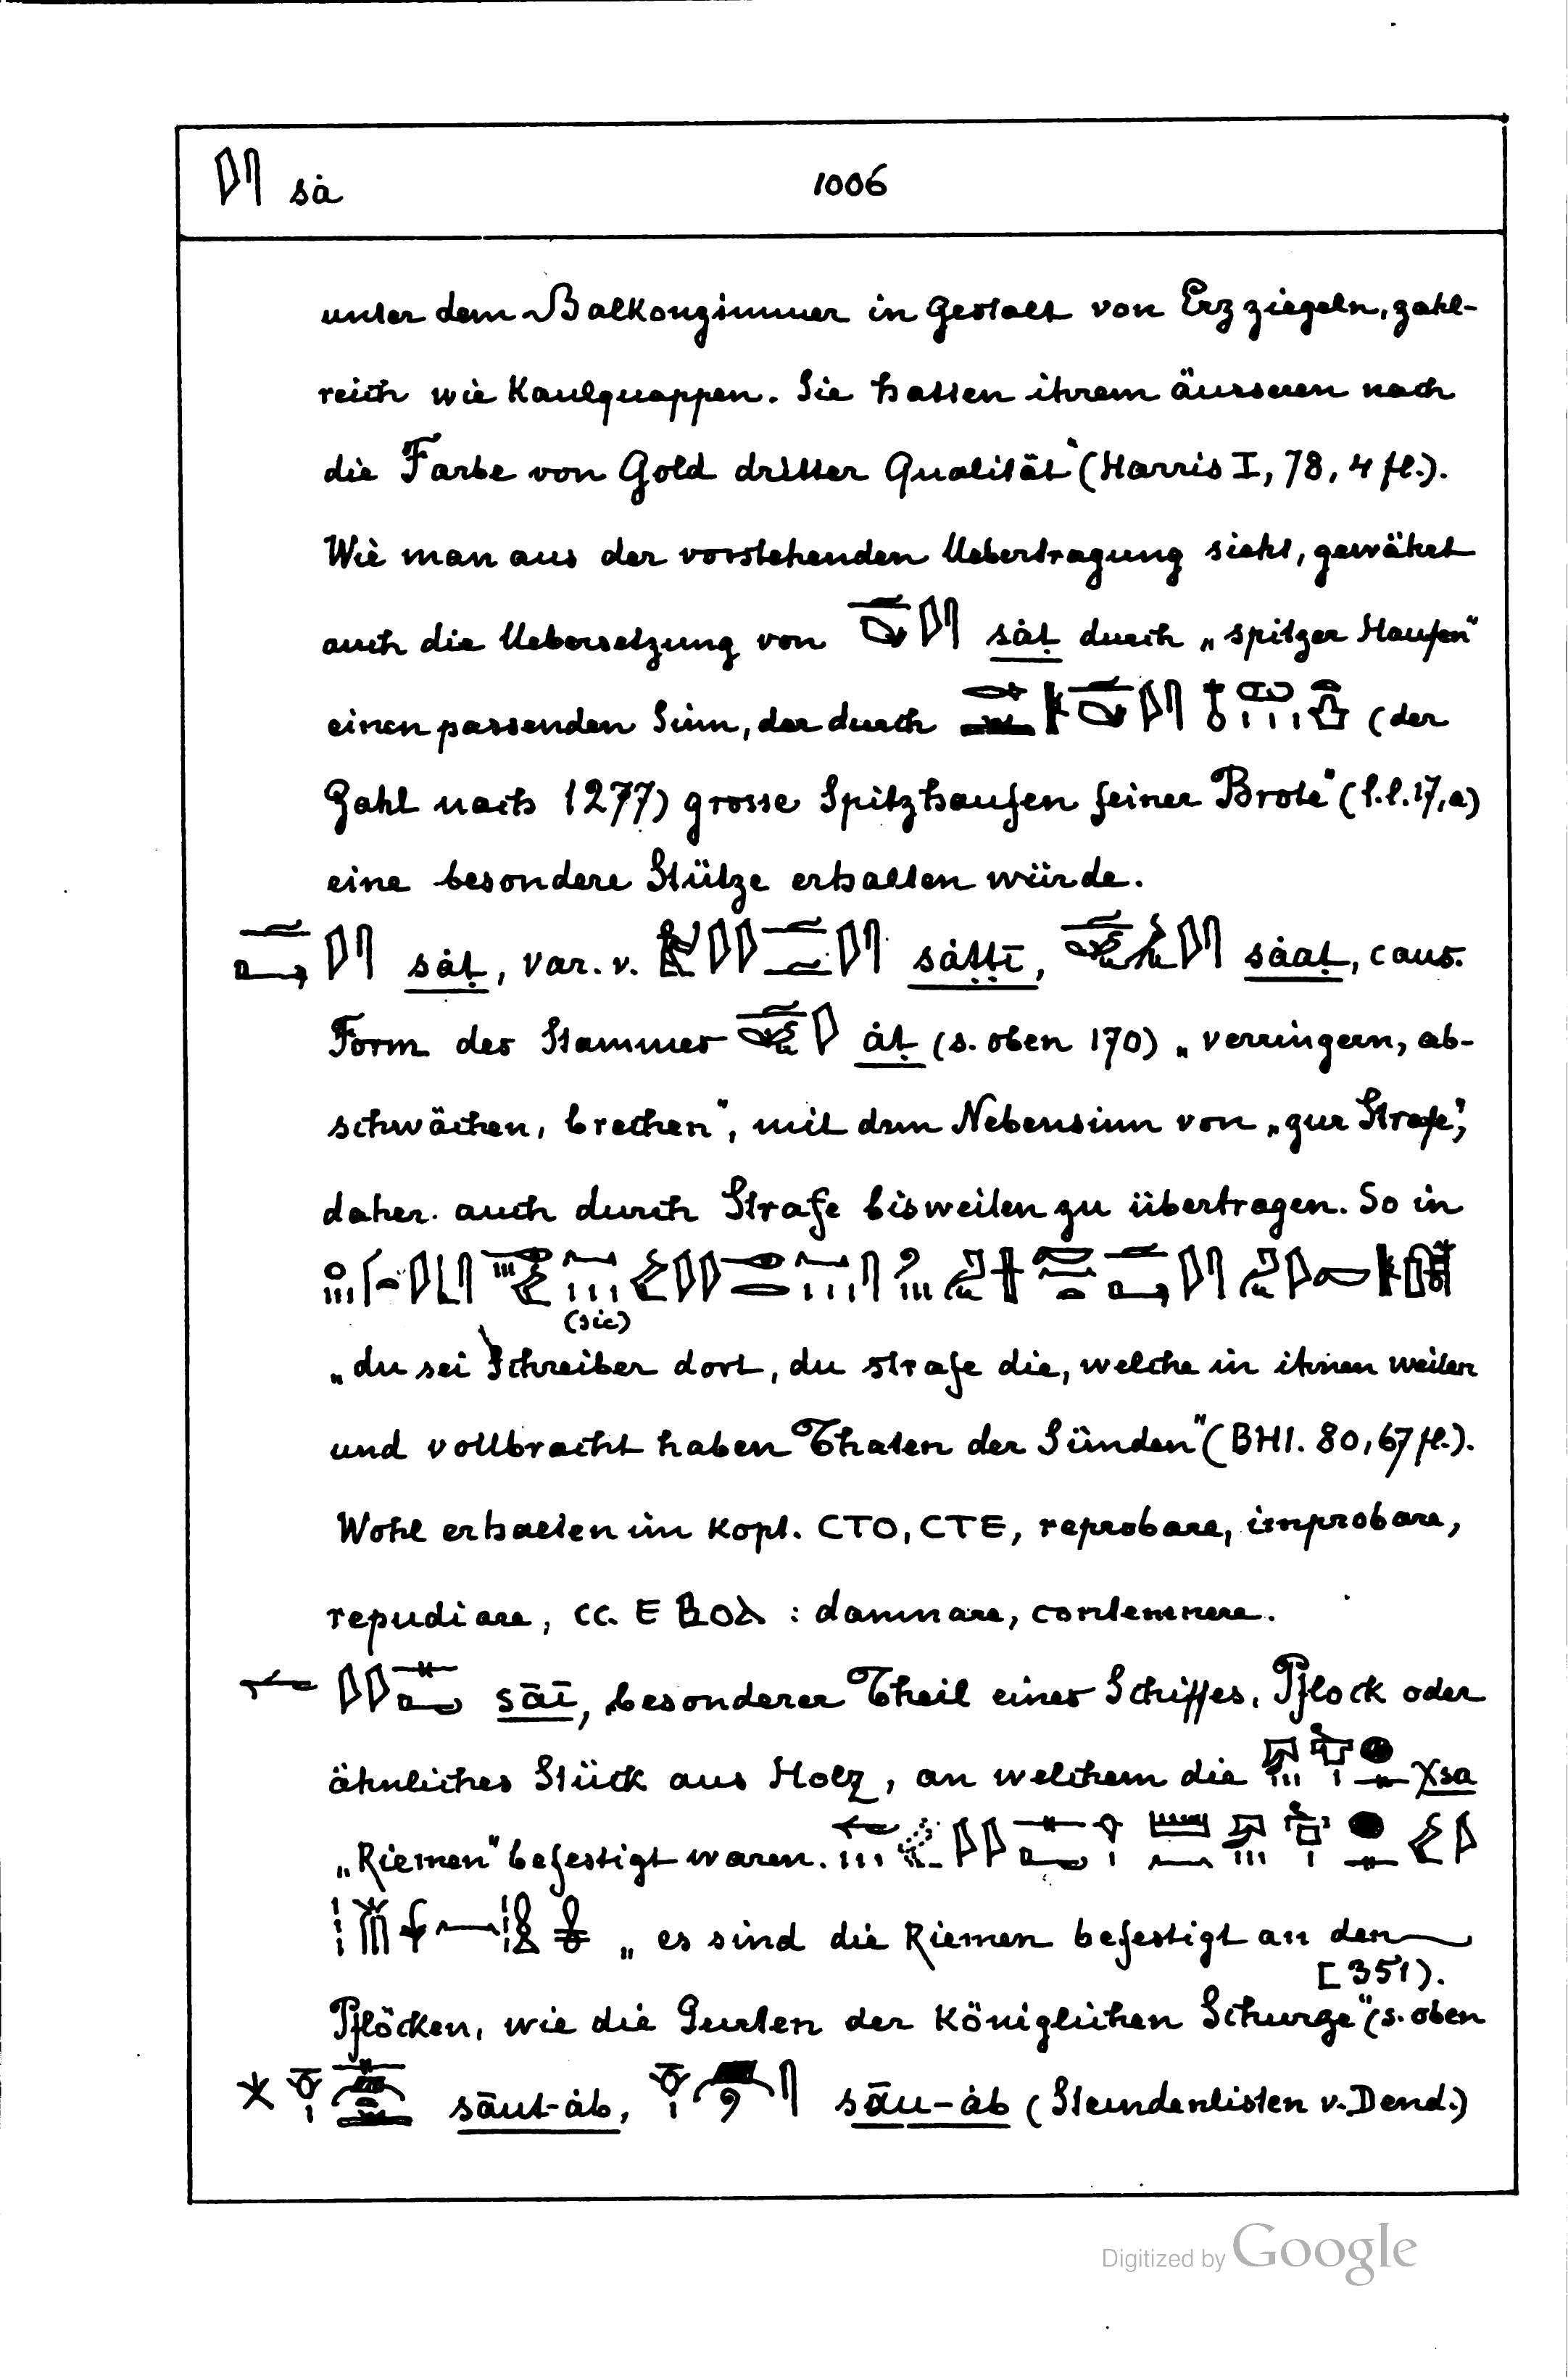 sȧ 1006
unter dem Balkonzimmer in Gestalt von Erzziegeln, zahl-
reich wie Kaulquappen. Sie hatten ihrem äusseren nach
die Farbe von Gold dritter Qualität" (Harris I, 78, 4 fl.).
Wie man aus der vorstehenden Uebertragung sieht, gewährt
auch die Uebersetzung von sȧṭ durch „spitzer Haufen"
einen passenden Sinn, der durch (der
Zahl nach 1277) grosse Spitzhaufen feiner Brote" (l.l. 17, a)
eine besondere Stütze erhalten würde.
sȧṭ, var. v. sȧṭṭī, sȧaṭ, caus.
Form des Stammes ȧṭ (s. oben 170) „verringern, ab-
schwächen, brechen", mit dem Nebensinn von „zur Strafe",
daher auch durch Strafe bisweilen zu übertragen. So in
(sic)
„du sei Schreiber dort, du strafe die, welche in ihnen weilen
und vollbracht haben Thaten der Sünden" (BHI. 80, 67 fl.).
Wohl erhalten im Kopt. ⲤⲦⲞ, ⲤⲦⲈ, reprobare, improbare,
repudiare, cc. ⲈⲂⲞⲗ : damnare, contemnere.
sāī, besonderer Theil eines Schiffes, Pflock oder
ähnliches Stück aus Holz, an welchem die χsa
„Riemen" befestigt waren.
„es sind die Riemen befestigt an den
[351).
Pflöcken, wie die Gurten der Königlichen Schurze" (s. oben
sāut-ȧb, sāu-ȧb (Stundenlisten v. Dend.)
Digitized by Google